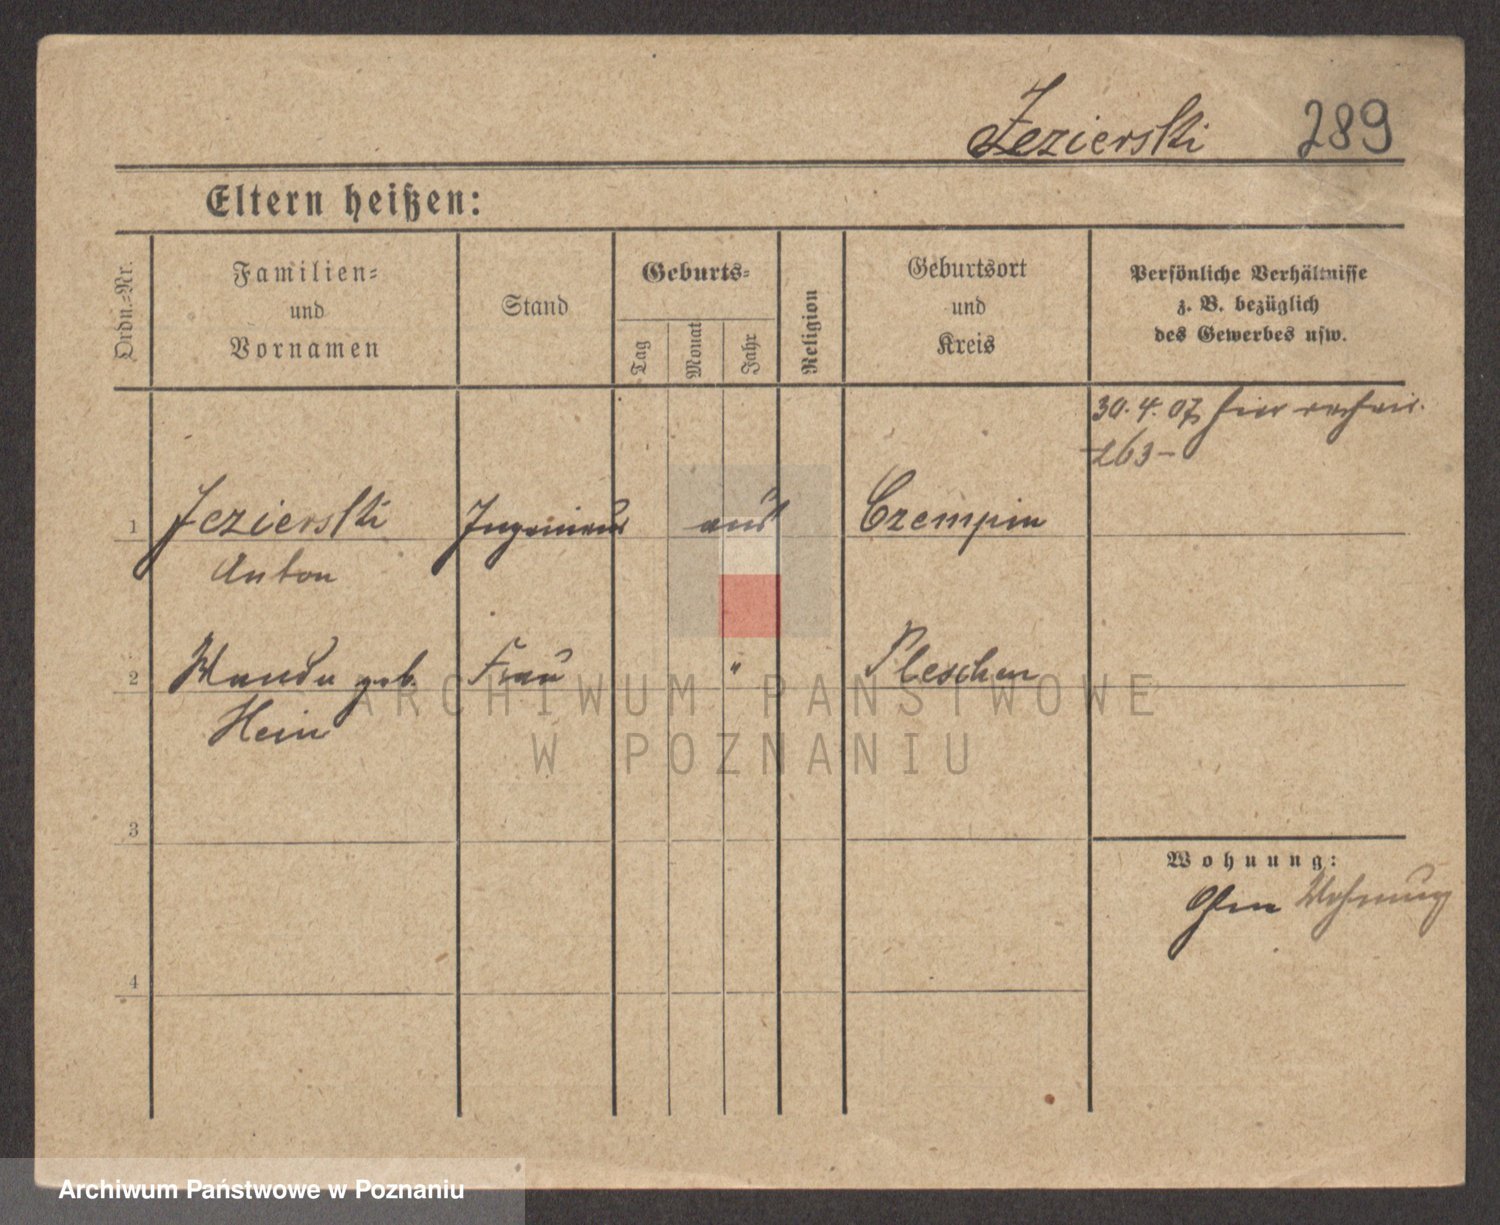 Jezierski 289
Eltern heißen:
Ordn.-Nr.
Familien-
und
Vornamen
Stand
Geburts-
Tag
Monat
Jahr
Religion
Geburtsort
und
Kreis
Persönliche Verhältnisse
z. B. bezüglich
des Gewerbes usw.
30. 4. 07 hier
263-
1 Jezierski Ingenieur aus Czempin
Anton
2 Wanda geb. Frau " Pleschen
Hein
3
4
Wohnung:
Ohne Wohnung
ARCHIWUM PAŃSTWOWE
W POZNANIU
Archiwum Państwowe w Poznaniu